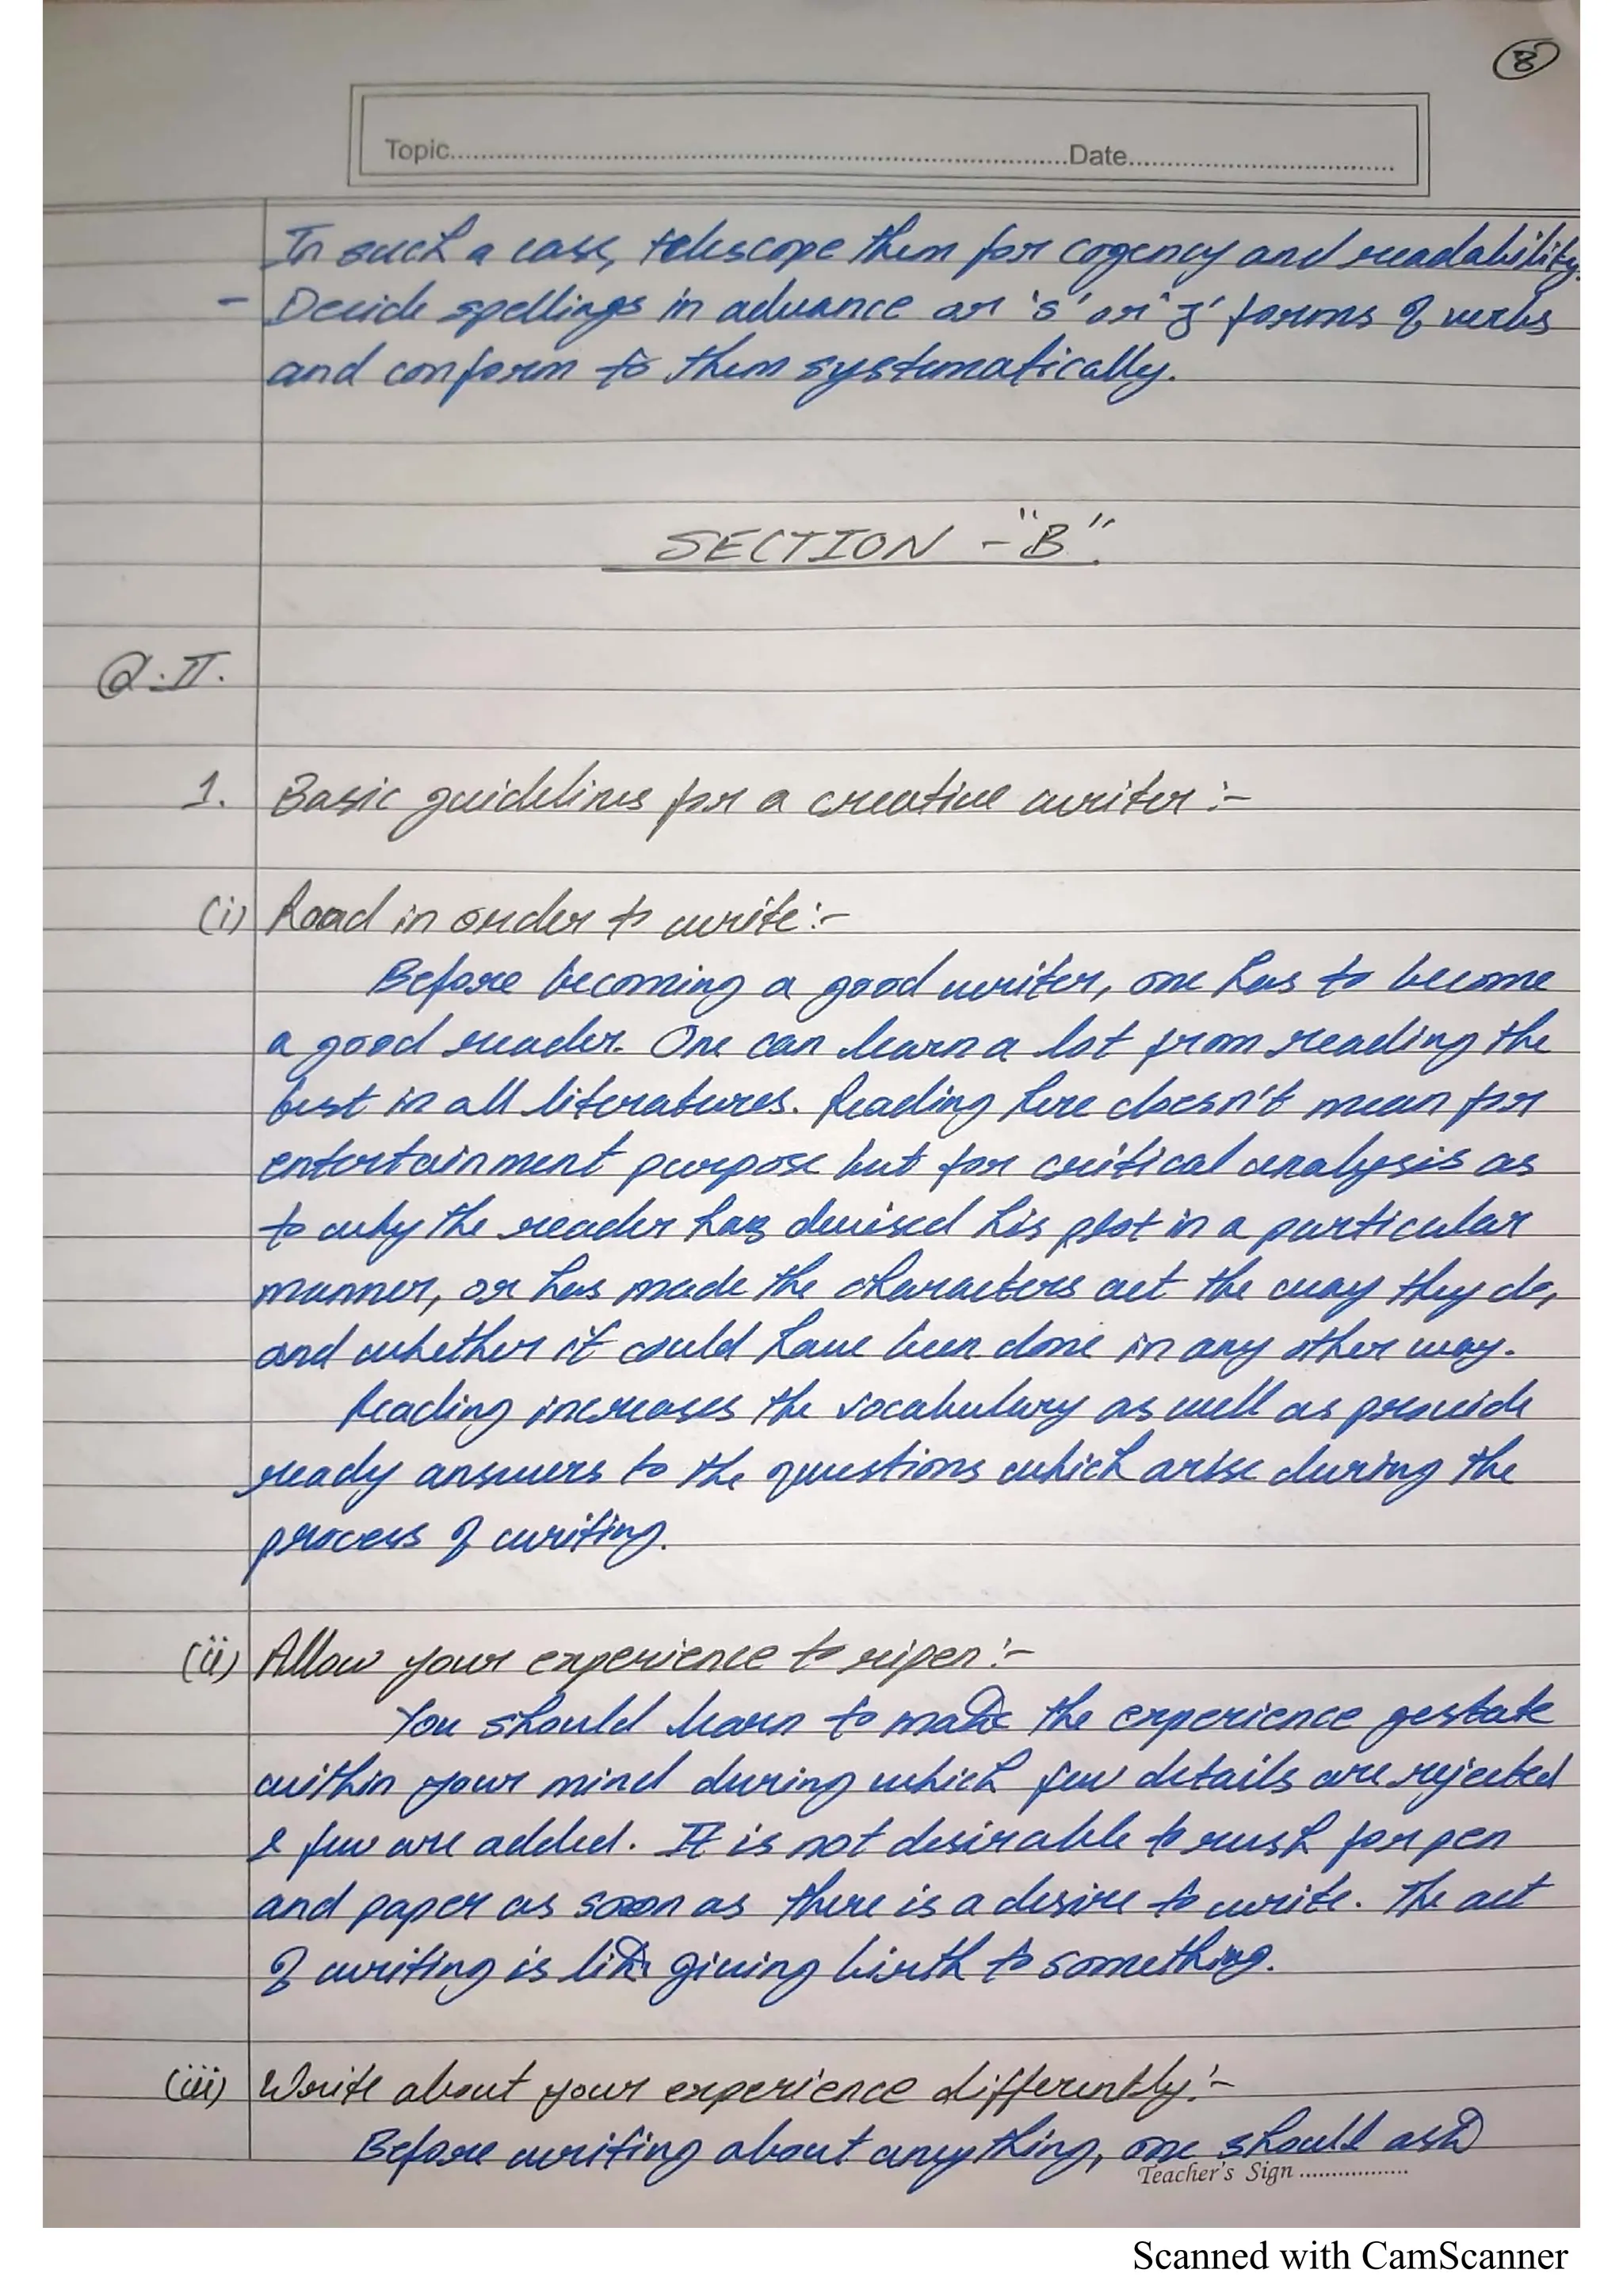 8
Topic..........Date..........
In such a case, telescope them for cogency and readability.
- Decide spellings in advance or 's' or 'z' forms of verbs
and conform to them systematically.
SECTION - "B".
Q.II.
1. Basic guidelines for a creative writer :-
(i) Read in order to write :-
Before becoming a good writer, one has to become
a good reader. One can learn a lot from reading the
best in all literatures. Reading here doesn't mean for
entertainment purpose but for critical analysis as
to why the reader has devised his plot in a particular
manner, or has made the characters act the way they do,
and whether it could have been done in any other way.
Reading increases the vocabulary as well as provide
ready answers to the questions which arise during the
process of writing.
(ii) Allow your experience to ripen :-
You should learn to make the experience gestate
within your mind during which few details are rejected
& few are added. It is not desirable to rush for pen
and paper as soon as there is a desire to write. The act
of writing is like giving birth to something.
(iii) Write about your experience differently :-
Before writing about anything, one should ask
Teacher's Sign ..........
Scanned with CamScanner